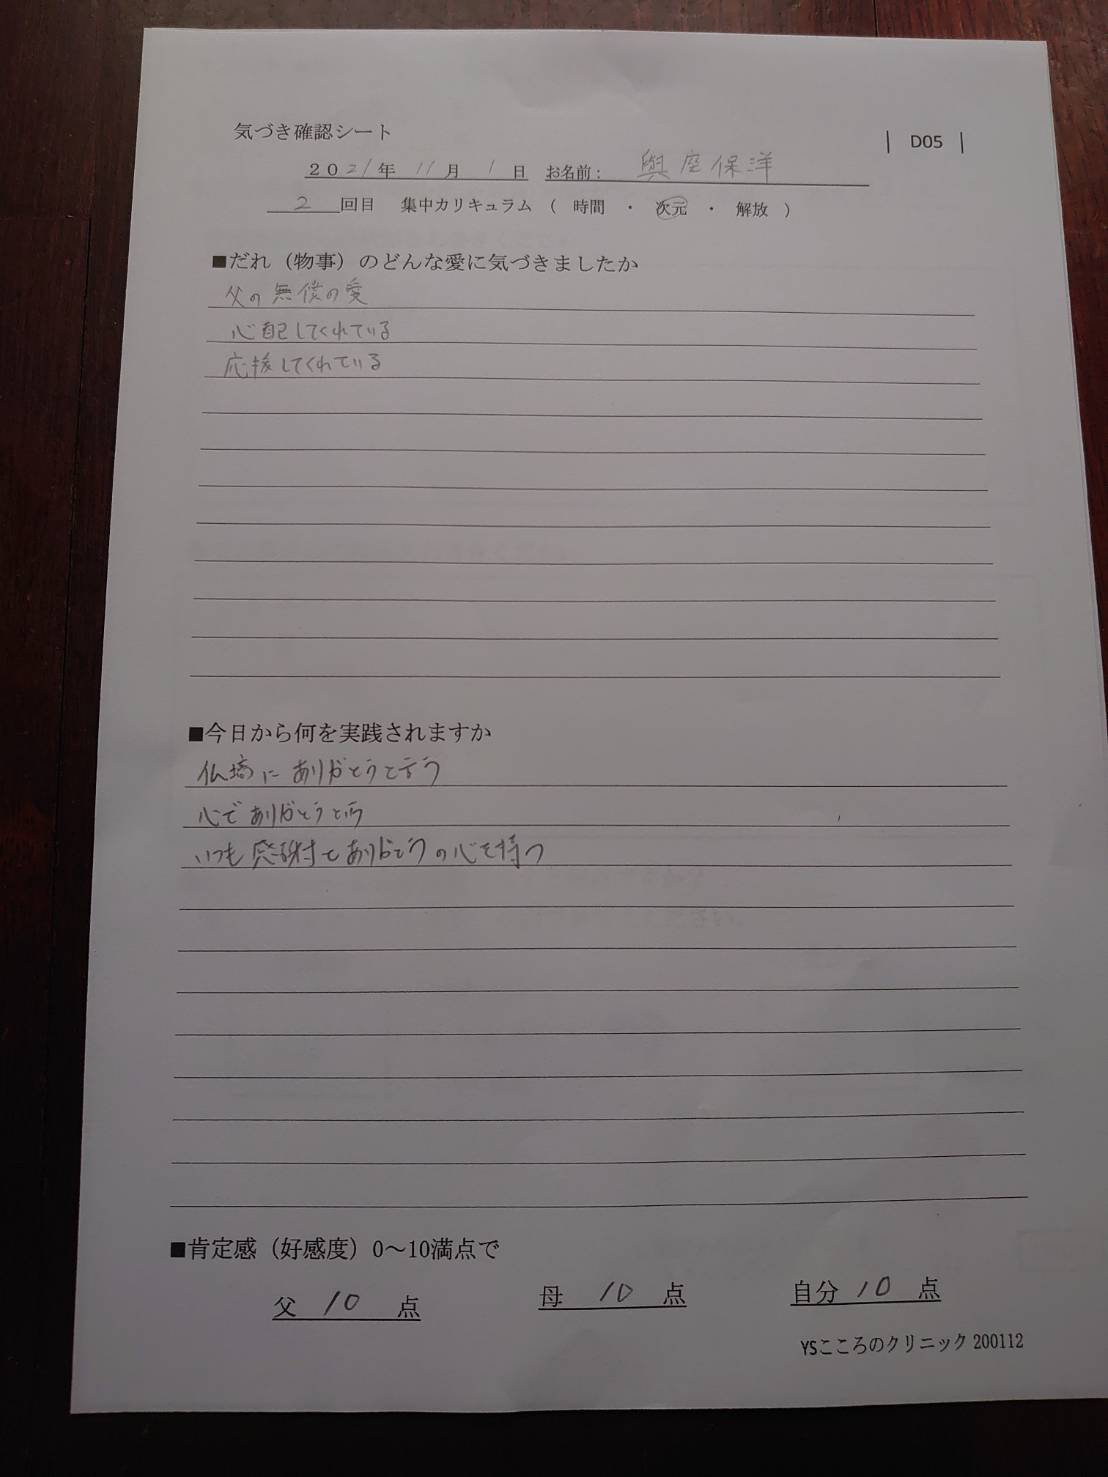 気づき確認シート
| D05 |
2021年 11月 1日 お名前： 與座保洋
2 回目 集中カリキュラム （ 時間 ・ 次元 ・ 解放 ）
■だれ（物事）のどんな愛に気づきましたか
父の無償の愛
心配してくれている
応援してくれている
■今日から何を実践されますか
仏壇にありがとうと言う
心でありがとうと言う
いつも感謝とありがとうの心を持つ
■肯定感（好感度）0～10満点で
父 10 点 母 10 点 自分 10 点
YSこころのクリニック 200112